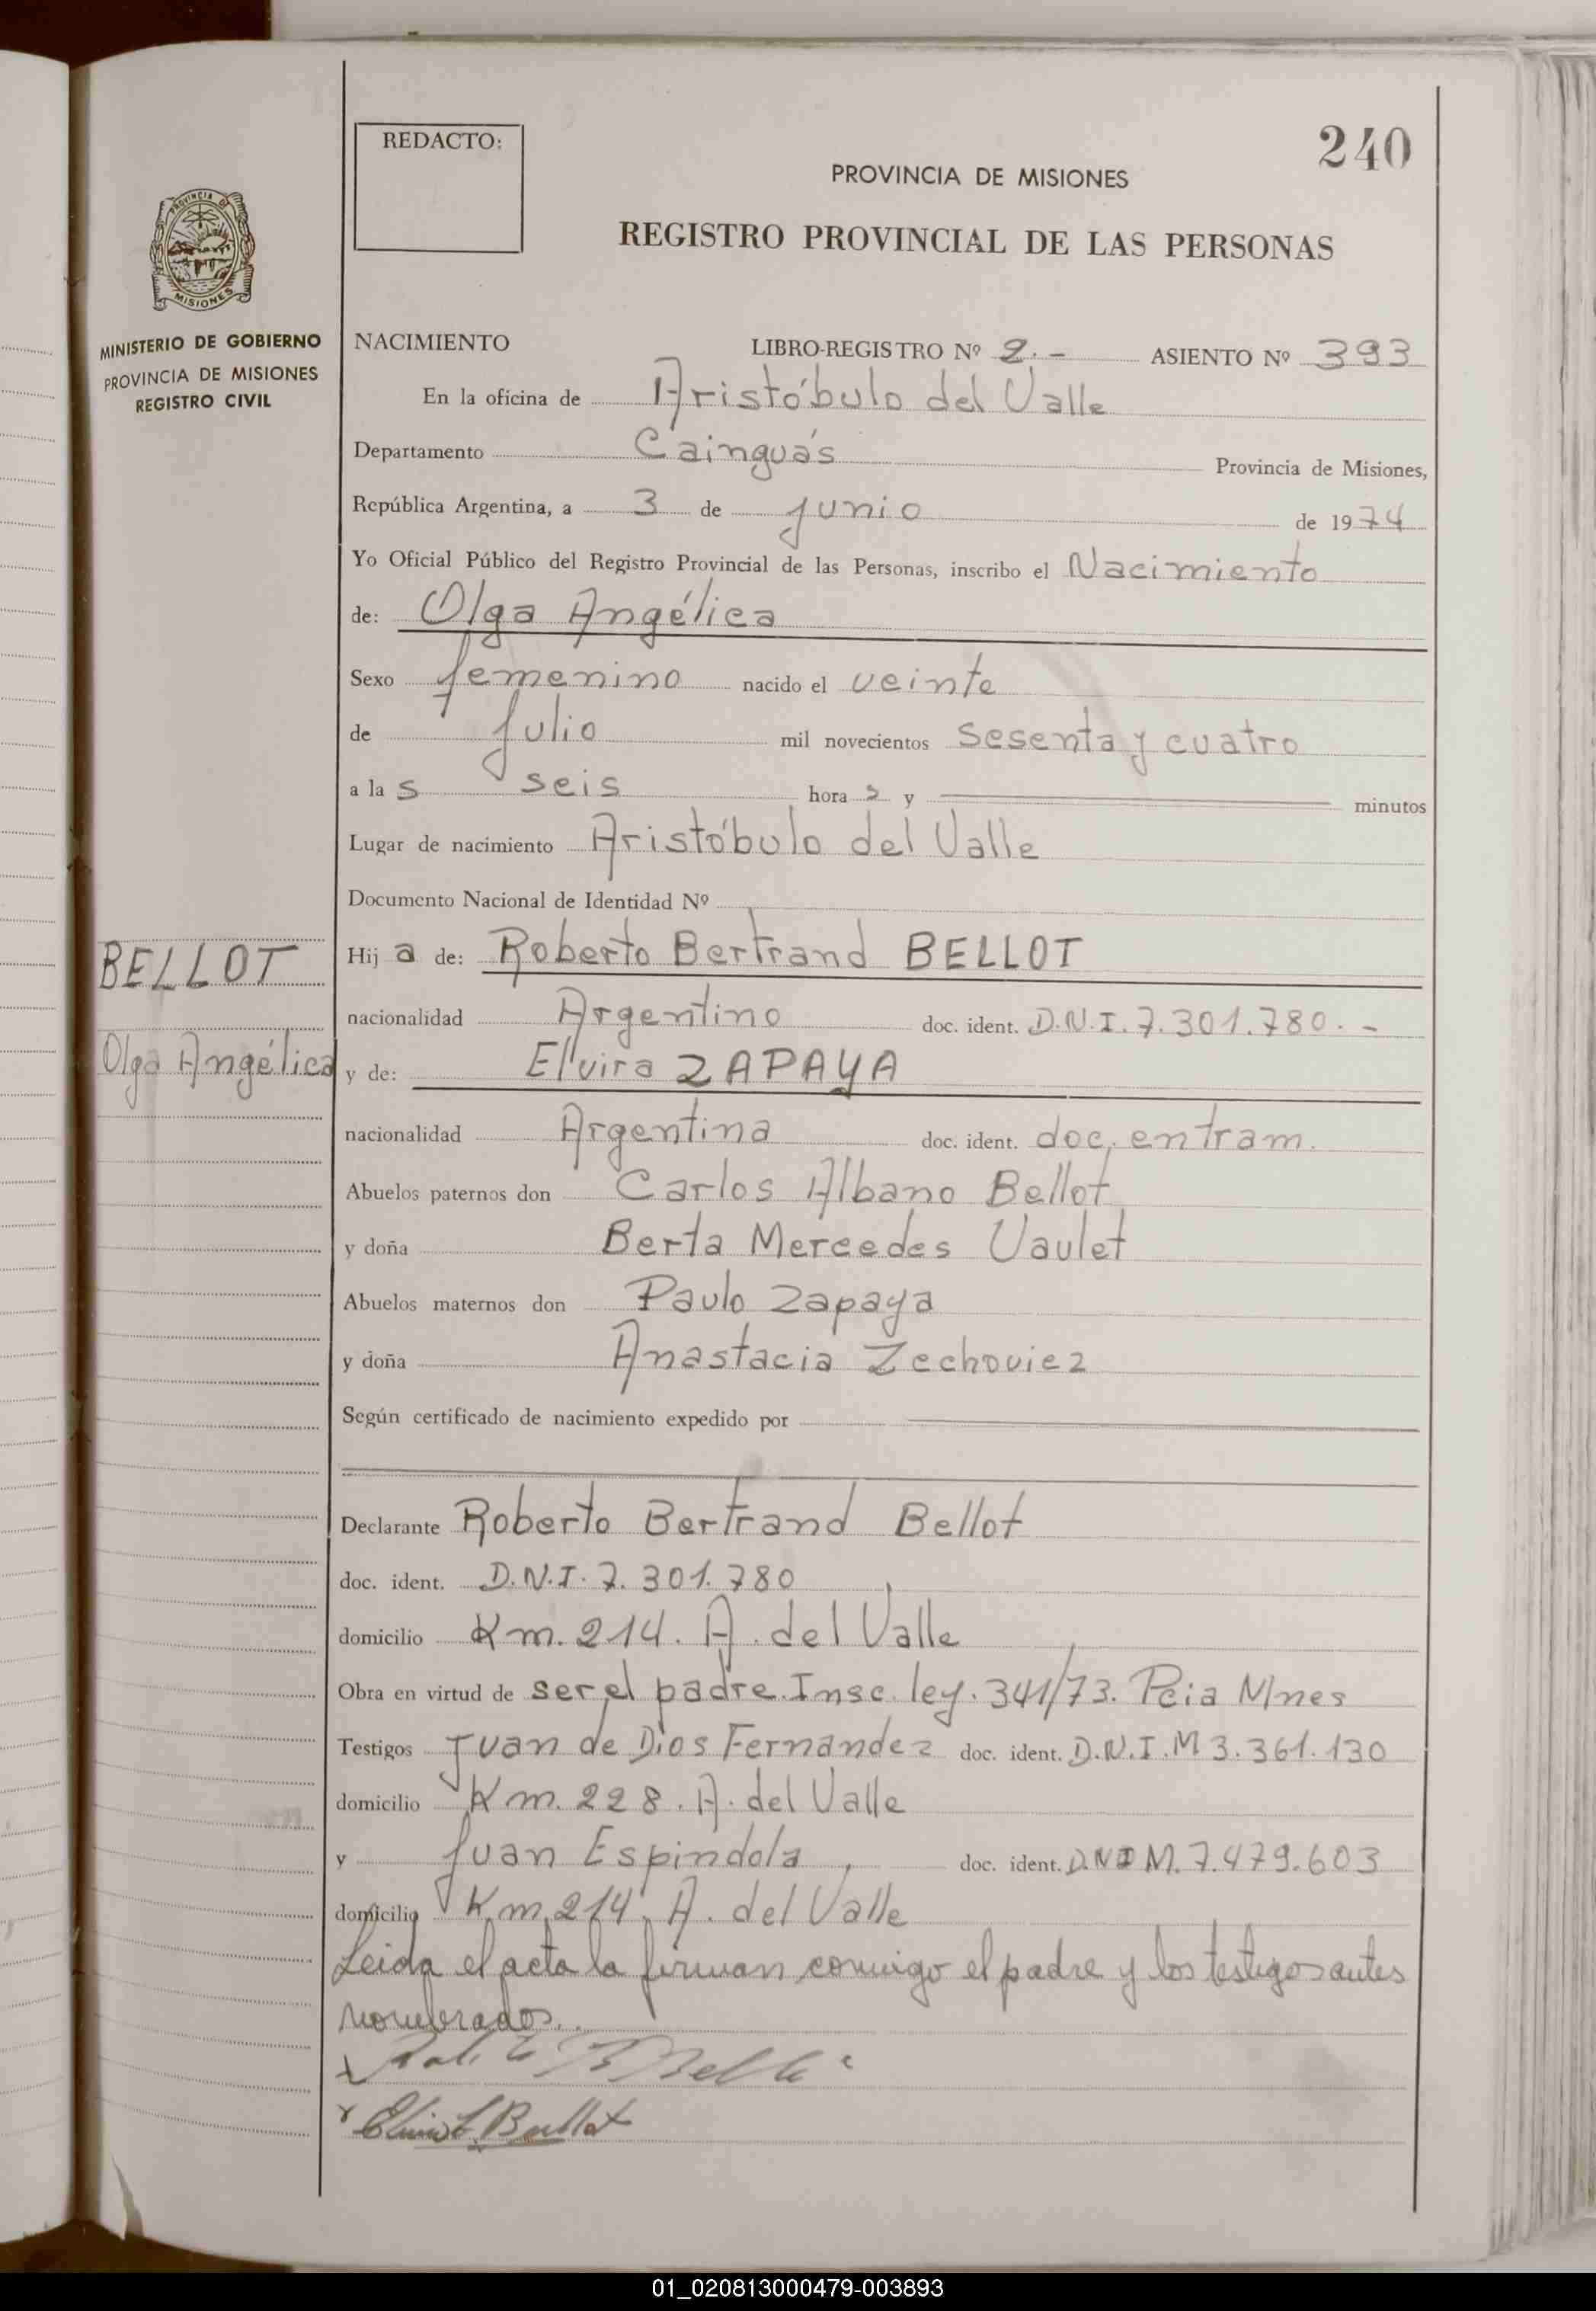 240
REDACTO:
PROVINCIA DE MISIONES
REGISTRO PROVINCIAL DE LAS PERSONAS
PROVINCIA DE
MISIONES
MINISTERIO DE GOBIERNO
PROVINCIA DE MISIONES
REGISTRO CIVIL
NACIMIENTO LIBRO-REGISTRO Nº 2.- ASIENTO Nº 393
En la oficina de Aristóbulo del Valle
Departamento Cainguás Provincia de Misiones,
República Argentina, a 3 de junio de 1974
Yo Oficial Público del Registro Provincial de las Personas, inscribo el Nacimiento
de: Olga Angélica
Sexo femenino nacido el veinte
de julio mil novecientos sesenta y cuatro
a la s seis hora s y minutos
Lugar de nacimiento Aristóbulo del Valle
Documento Nacional de Identidad Nº
BELLOT
Olga Angélica
Hij a de: Roberto Bertrand BELLOT
nacionalidad Argentino doc. ident. D.N.I. 7.301.780.-
y de: Elvira ZAPAYA
nacionalidad Argentina doc. ident. doc. entram.
Abuelos paternos don Carlos Albano Bellot
y doña Berta Mercedes Vaulet
Abuelos maternos don Paulo Zapaya
y doña Anastacia Zechoviez
Según certificado de nacimiento expedido por
Declarante Roberto Bertrand Bellot
doc. ident. D.N.I. 7.301.780
domicilio Km. 214. A. del Valle
Obra en virtud de ser el padre. Insc. ley. 341/73. Pcia Mnes
Testigos Juan de Dios Fernandez doc. ident. D.N.I. M 3.361.130
domicilio Km. 228. A. del Valle
y Juan Espindola, doc. ident. DNI M. 7.479.603
domicilio Km. 214. A. del Valle
Leida el acta la firman conmigo el padre y los testigos antes
nombrados..
01_020813000479-003893